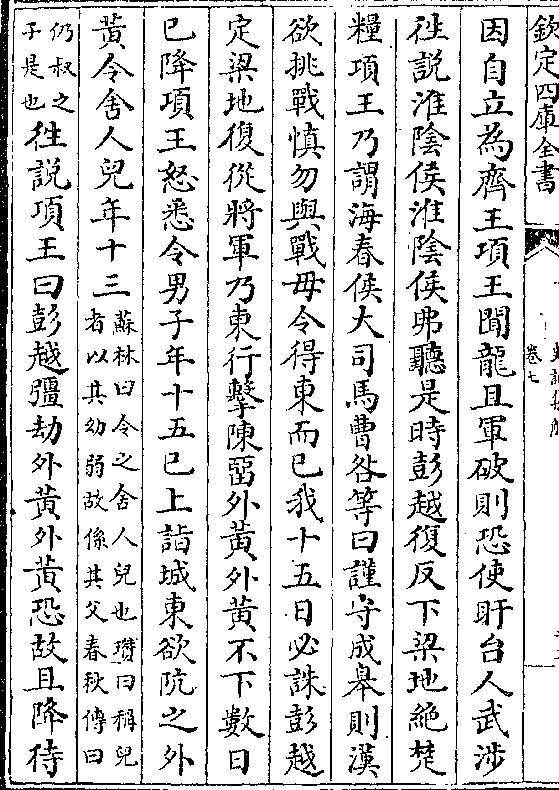 欽定四庫全書
卷七
因自立為齊王項王聞龍且軍破則恐使盱台人武涉
徃說淮陰侯淮陰侯弗聽是時彭越復反下梁地絶楚
糧項王乃謂海春侯大司馬曹咎等曰謹守成臯則漢
欲挑戰慎勿與戰毋令得東而已我十五日必誅彭越
定梁地復從將軍乃東行擊陳畱外黃外黃不下數日
已降項王怒悉令男子年十五已上詣城東欲阬之外
黃令舍人兒年十三蘇林曰令之舍人兒也瓚曰稱兒者以其幼弱故係其父春秋傳曰
仍叔之子是也徃說項王曰彭越彊劫外黃外黃恐故且降待